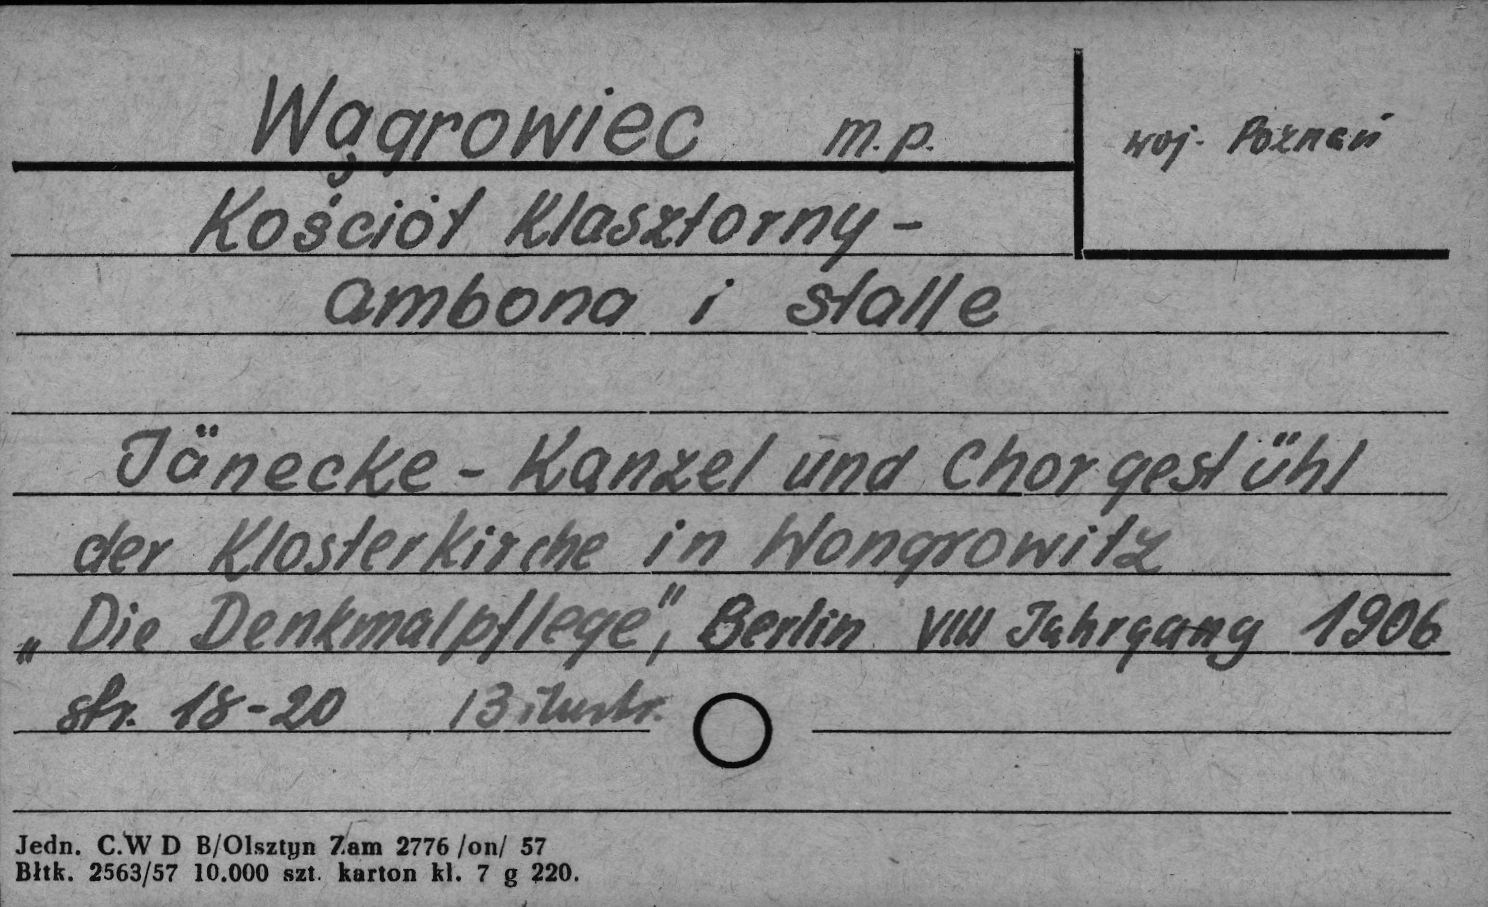 Wągrowiec m.p.
woj. Poznań
Kościół Klasztorny -
ambona i stalle
Jänecke - Kanzel und Chorgestühl
der Klosterkirche in Wongrowitz
„Die Denkmalpflege", Berlin VIII Jahrgang 1906
str. 18-20 13 ilustr.
Jedn. C.W D B/Olsztyn Zam 2776 /on/ 57
Błtk. 2563/57 10.000 szt. karton kl. 7 g 220.